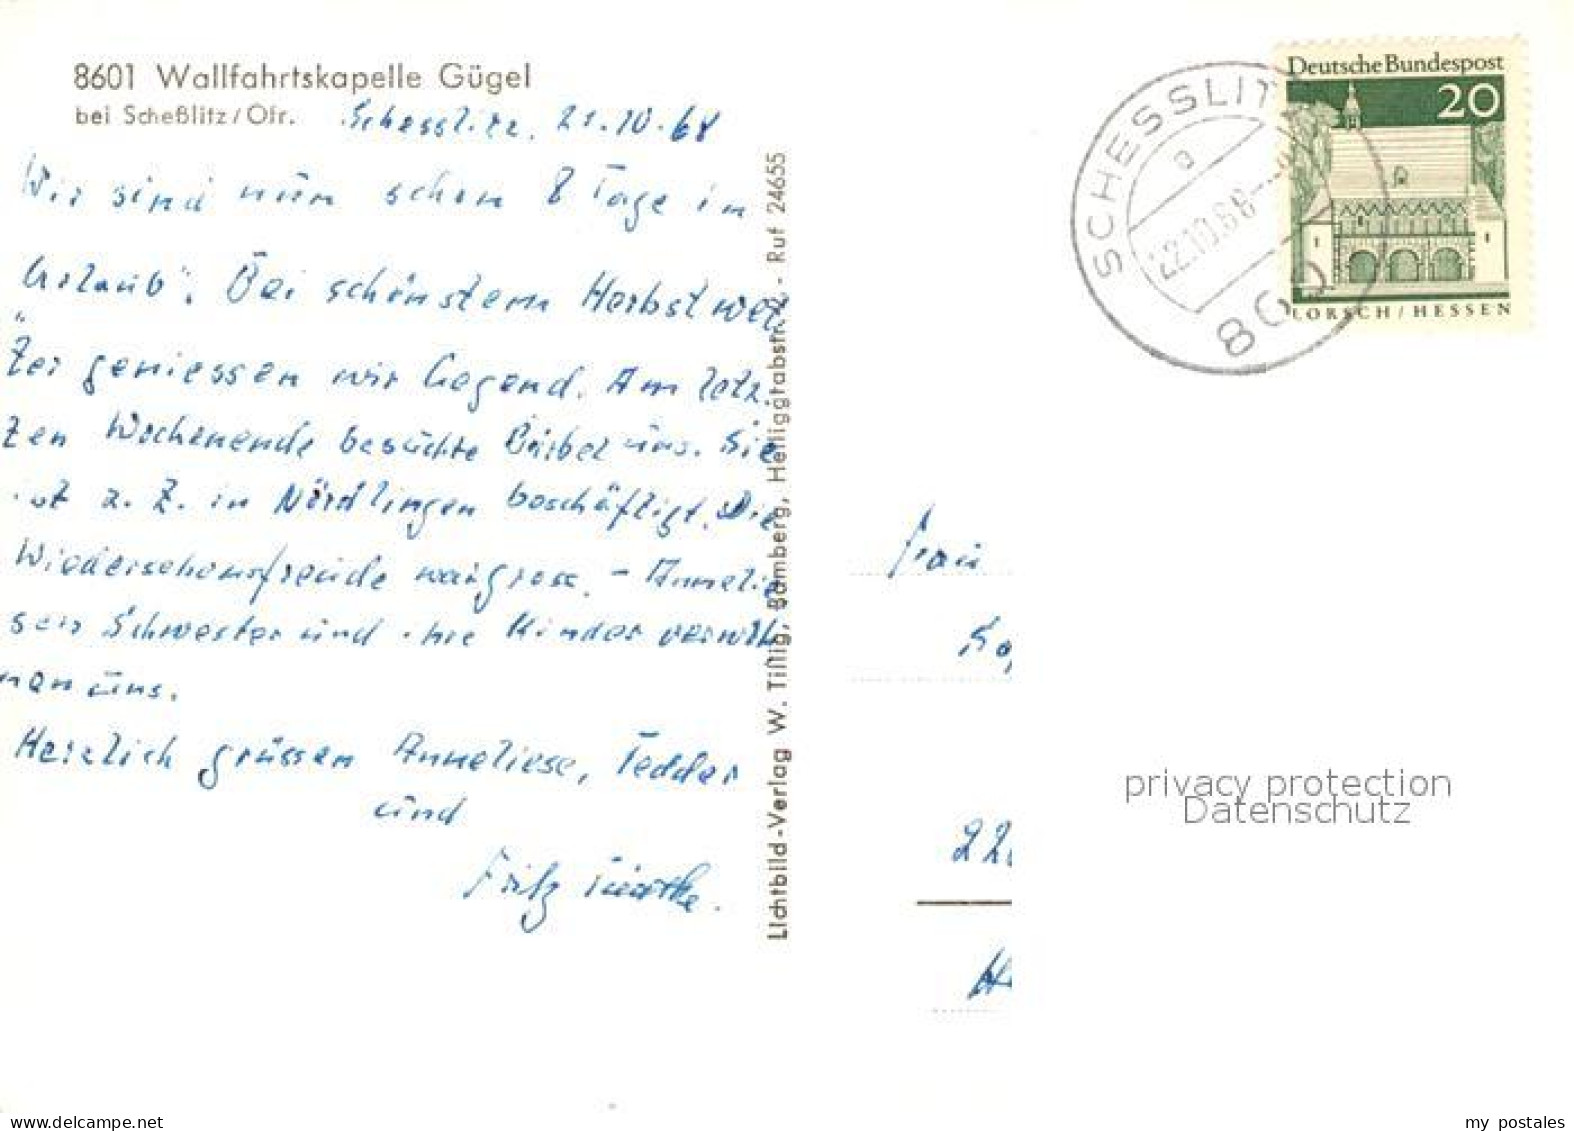 8601 Wallfahrtskapelle Gügel
bei Scheßlitz/Ofr.
Schesslitz, 21.10.68
Wir sind nun schon 8 Tage im
"Urlaub". Bei schönstem Herbstwet,
ter geniessen wir Gegend. Am letz.
ten Wochenende besuchte Bärbel uns. Sie
ist z. Z. in Nördlingen beschäftigt. Die
Wiedersehensfreude war gross. - Annelie
sens Schwester und ihre Kinder verwöh
nen uns.
Herzlich grüssen Anneliese, Tedder
und
Fritz
Lichtbild-Verlag W. Tillig, Bamberg, Heiliggrabstr. - Ruf 24655
Deutsche Bundespost
20
LORSCH/HESSEN
SCHESSLITZ
a
22.10.68
860
Frau
22
privacy protection
Datenschutz
www.delcampe.net
my postales